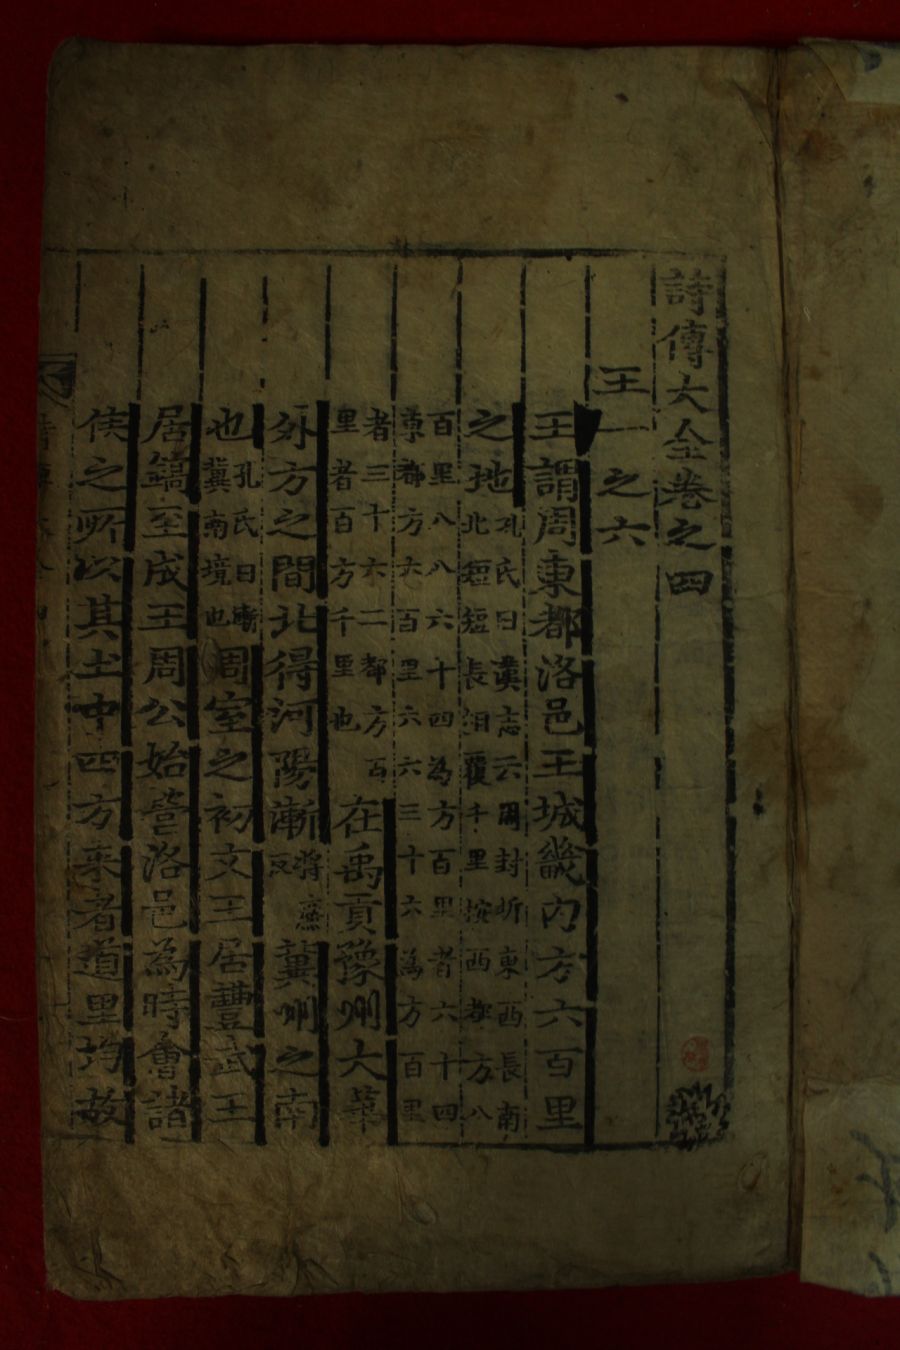 詩傳大全卷之四
王一之六
王謂周東都洛邑王城畿內方六百里
之地孔氏曰漢志云周封圻東西長南
北短短長相覆千里按西都方八
百里八八六十四為方百里者六十四
東都方六百里六六三十六為方百里
者三十六二都方百
里者百方千里也在禹貢豫州大華
外方之間北得河陽漸將廉反冀州之南
也孔氏曰漸冀南境也周室之初文王居豐武王
居鎬至成王周公始營洛邑為時會諸
侯之所以其土中四方來者道里均故